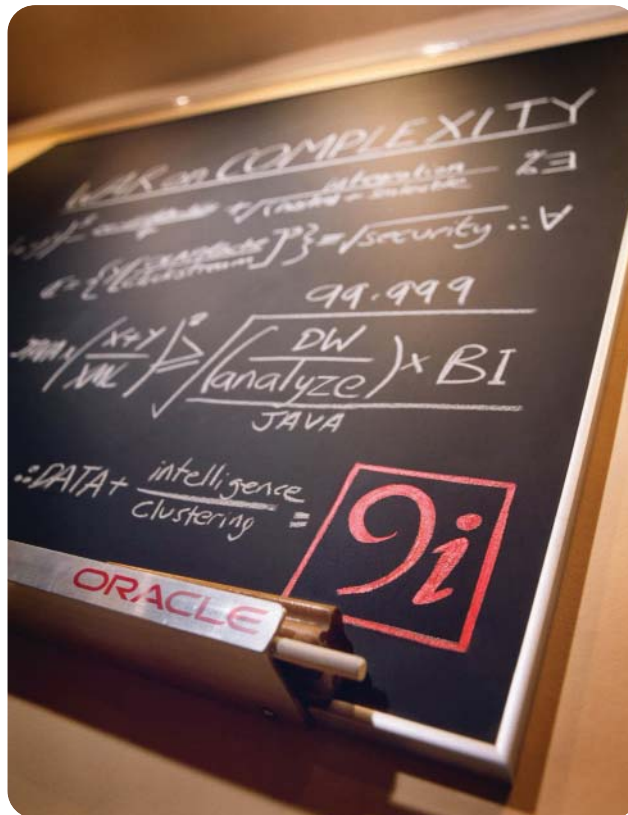 WAR on COMPLEXITY
integration
= √security ∴ ∀
99.999
DW
analyze ) × BI
JAVA
∴ DATA + intelligence
clustering =
9i
ORACLE